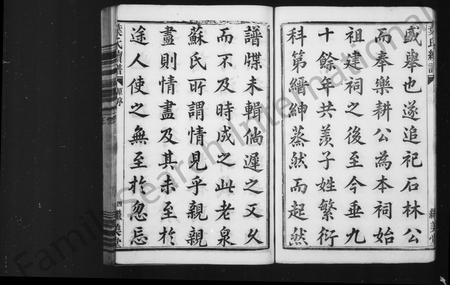 盛舉也遂追祀石林公
而奉樂耕公為本祠始
祖建祠之後至今垂九
十餘年共羡子姓繁衍
科第縉紳蒸然而起然
譜牒未輯倘遲之又久
而不及時成之此老泉
蘇氏所謂情見乎親親
盡則情盡及其未至於
途人使之無至於忽忘
葉氏續譜
FamilySearch International